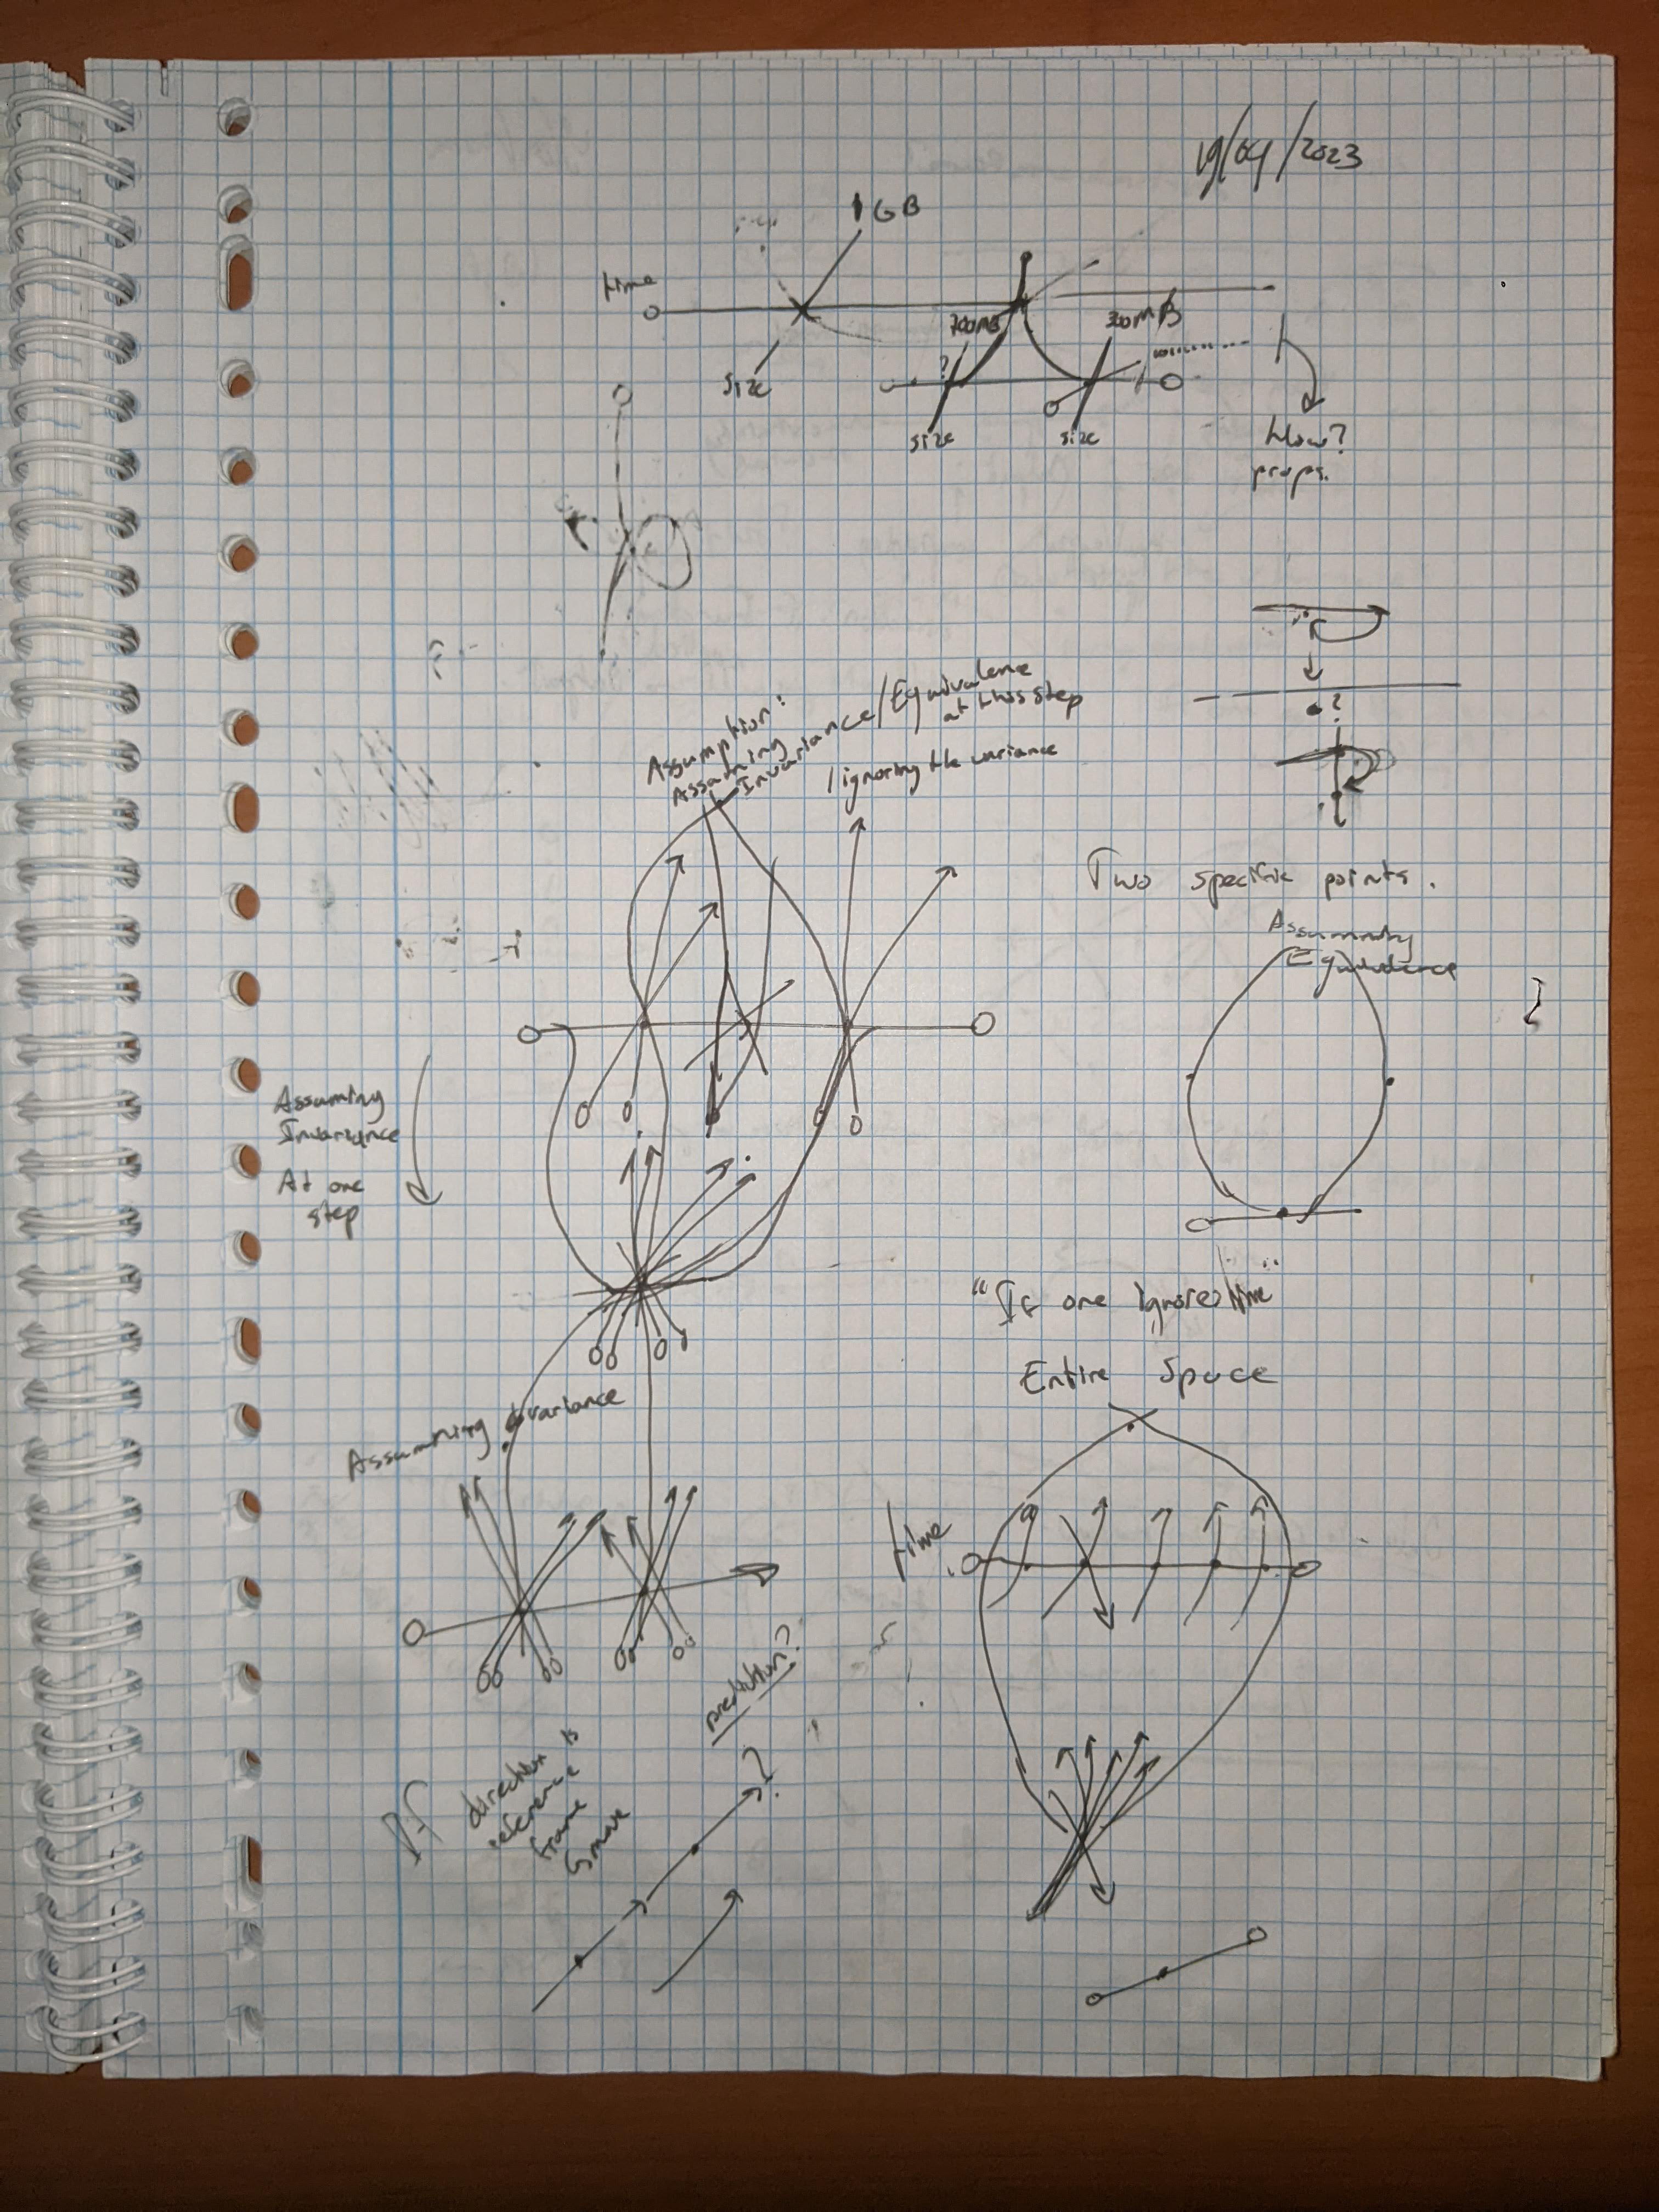 19/04/2023
1 GB
time
700MB
300MB
?
size
size
size
How?
props.
?
Assumption:
Assuming
Invariance/Equivalence
at this step
/ignoring the variance
Two specific points.
Assuming
Equivalence
Assuming
Invariance
At one
step
"If one ignores time"
Entire Space
Assuming variance
time
prediction?
If direction is
reference
frame
?